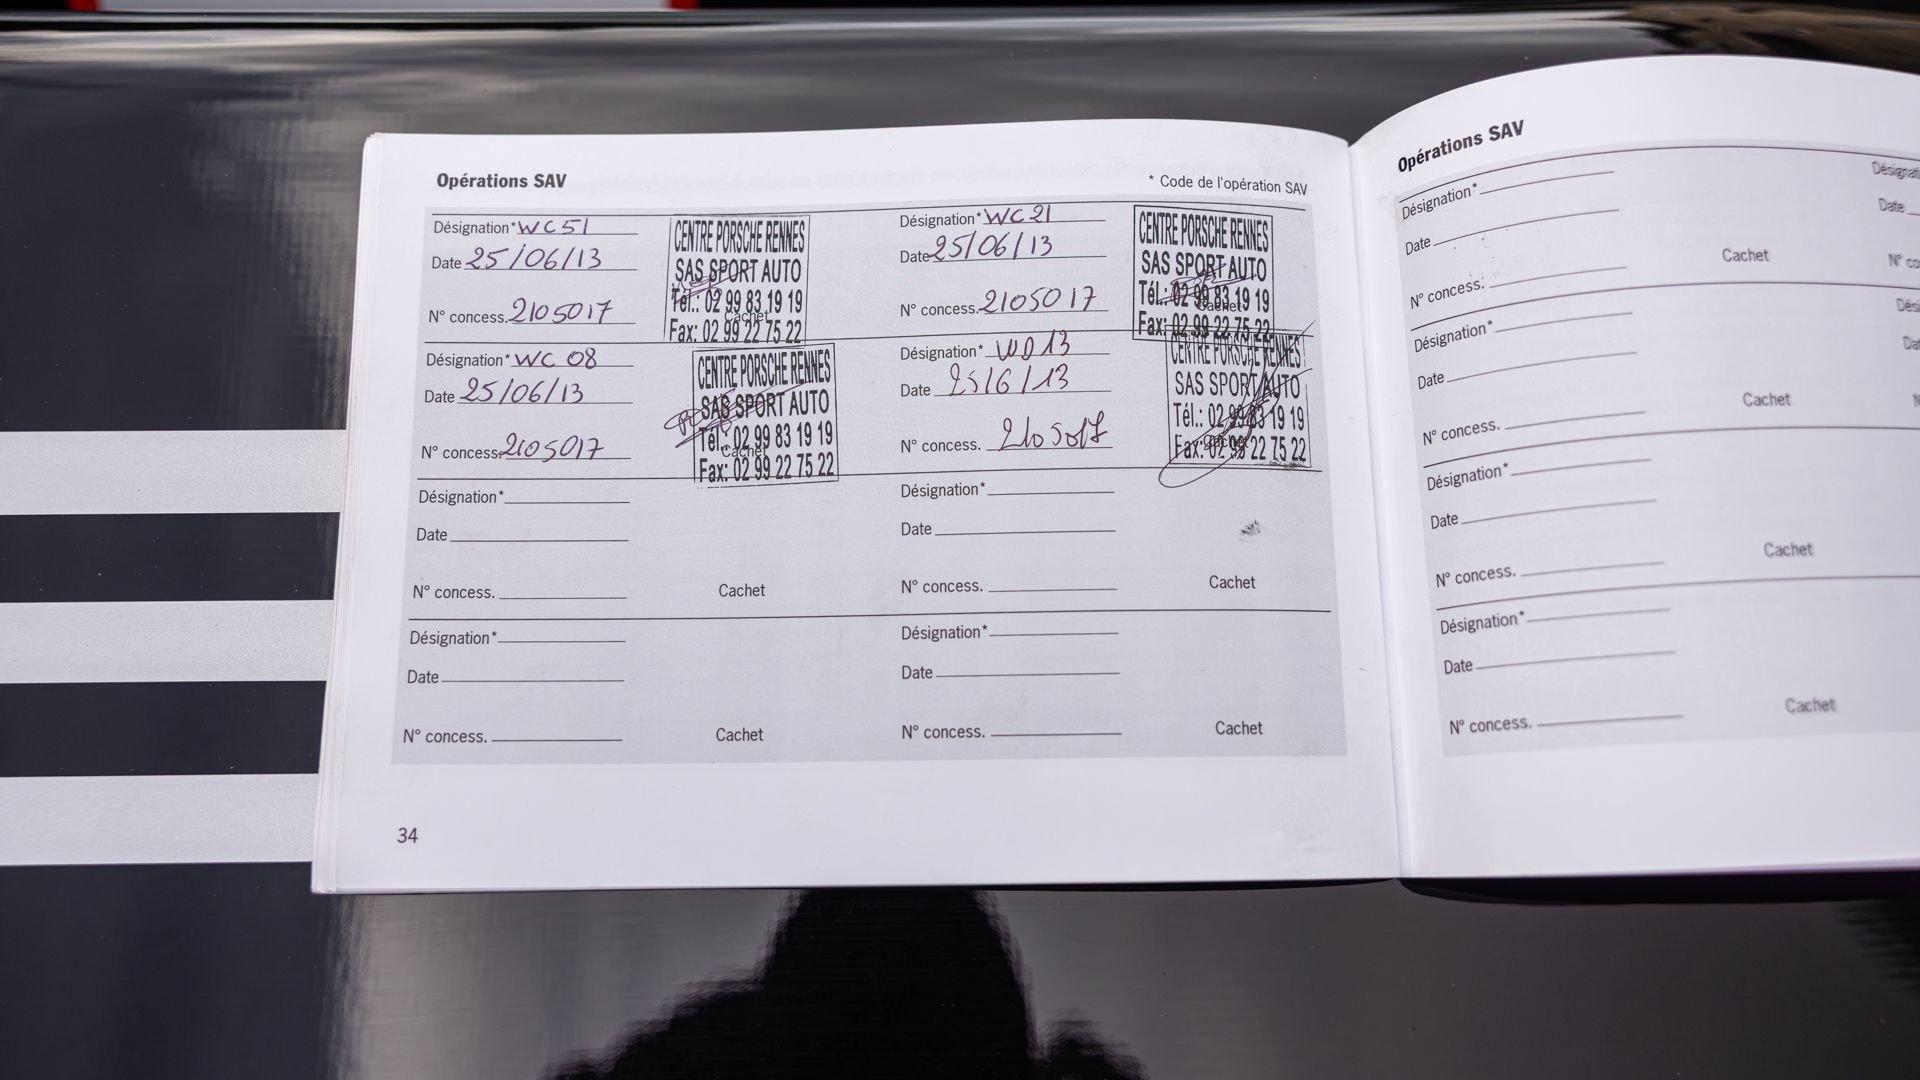 Opérations SAV
* Code de l'opération SAV
Désignation* WC51
Date 25/06/13
N° concess. 2105017
CENTRE PORSCHE RENNES
SAS SPORT AUTO
Tél.: 02 99 83 19 19
Cachet
Fax: 02 99 22 75 22
Désignation* WC21
Date 25/06/13
N° concess. 2105017
CENTRE PORSCHE RENNES
SAS SPORT AUTO
Tél.: 02 99 83 19 19
Cachet
Fax: 02 99 22 75 22
Désignation* WC 08
Date 25/06/13
N° concess. 2105017
CENTRE PORSCHE RENNES
SAS SPORT AUTO
Tél.: 02 99 83 19 19
Cachet
Fax: 02 99 22 75 22
Désignation* WD13
Date 25/6/13
N° concess. 2105017
CENTRE PORSCHE RENNES
SAS SPORT AUTO
Tél.: 02 99 83 19 19
Cachet
Fax: 02 99 22 75 22
Désignation*
Date
N° concess.
Cachet
Désignation*
Date
N° concess.
Cachet
Désignation*
Date
N° concess.
Cachet
Désignation*
Date
N° concess.
Cachet
34
Opérations SAV
Désignation*
Date
N° concess.
Cachet
Désignation*
Date
N° concess.
Cachet
Désignation*
Date
N° concess.
Cachet
Désignation*
Date
N° concess.
Cachet
Date